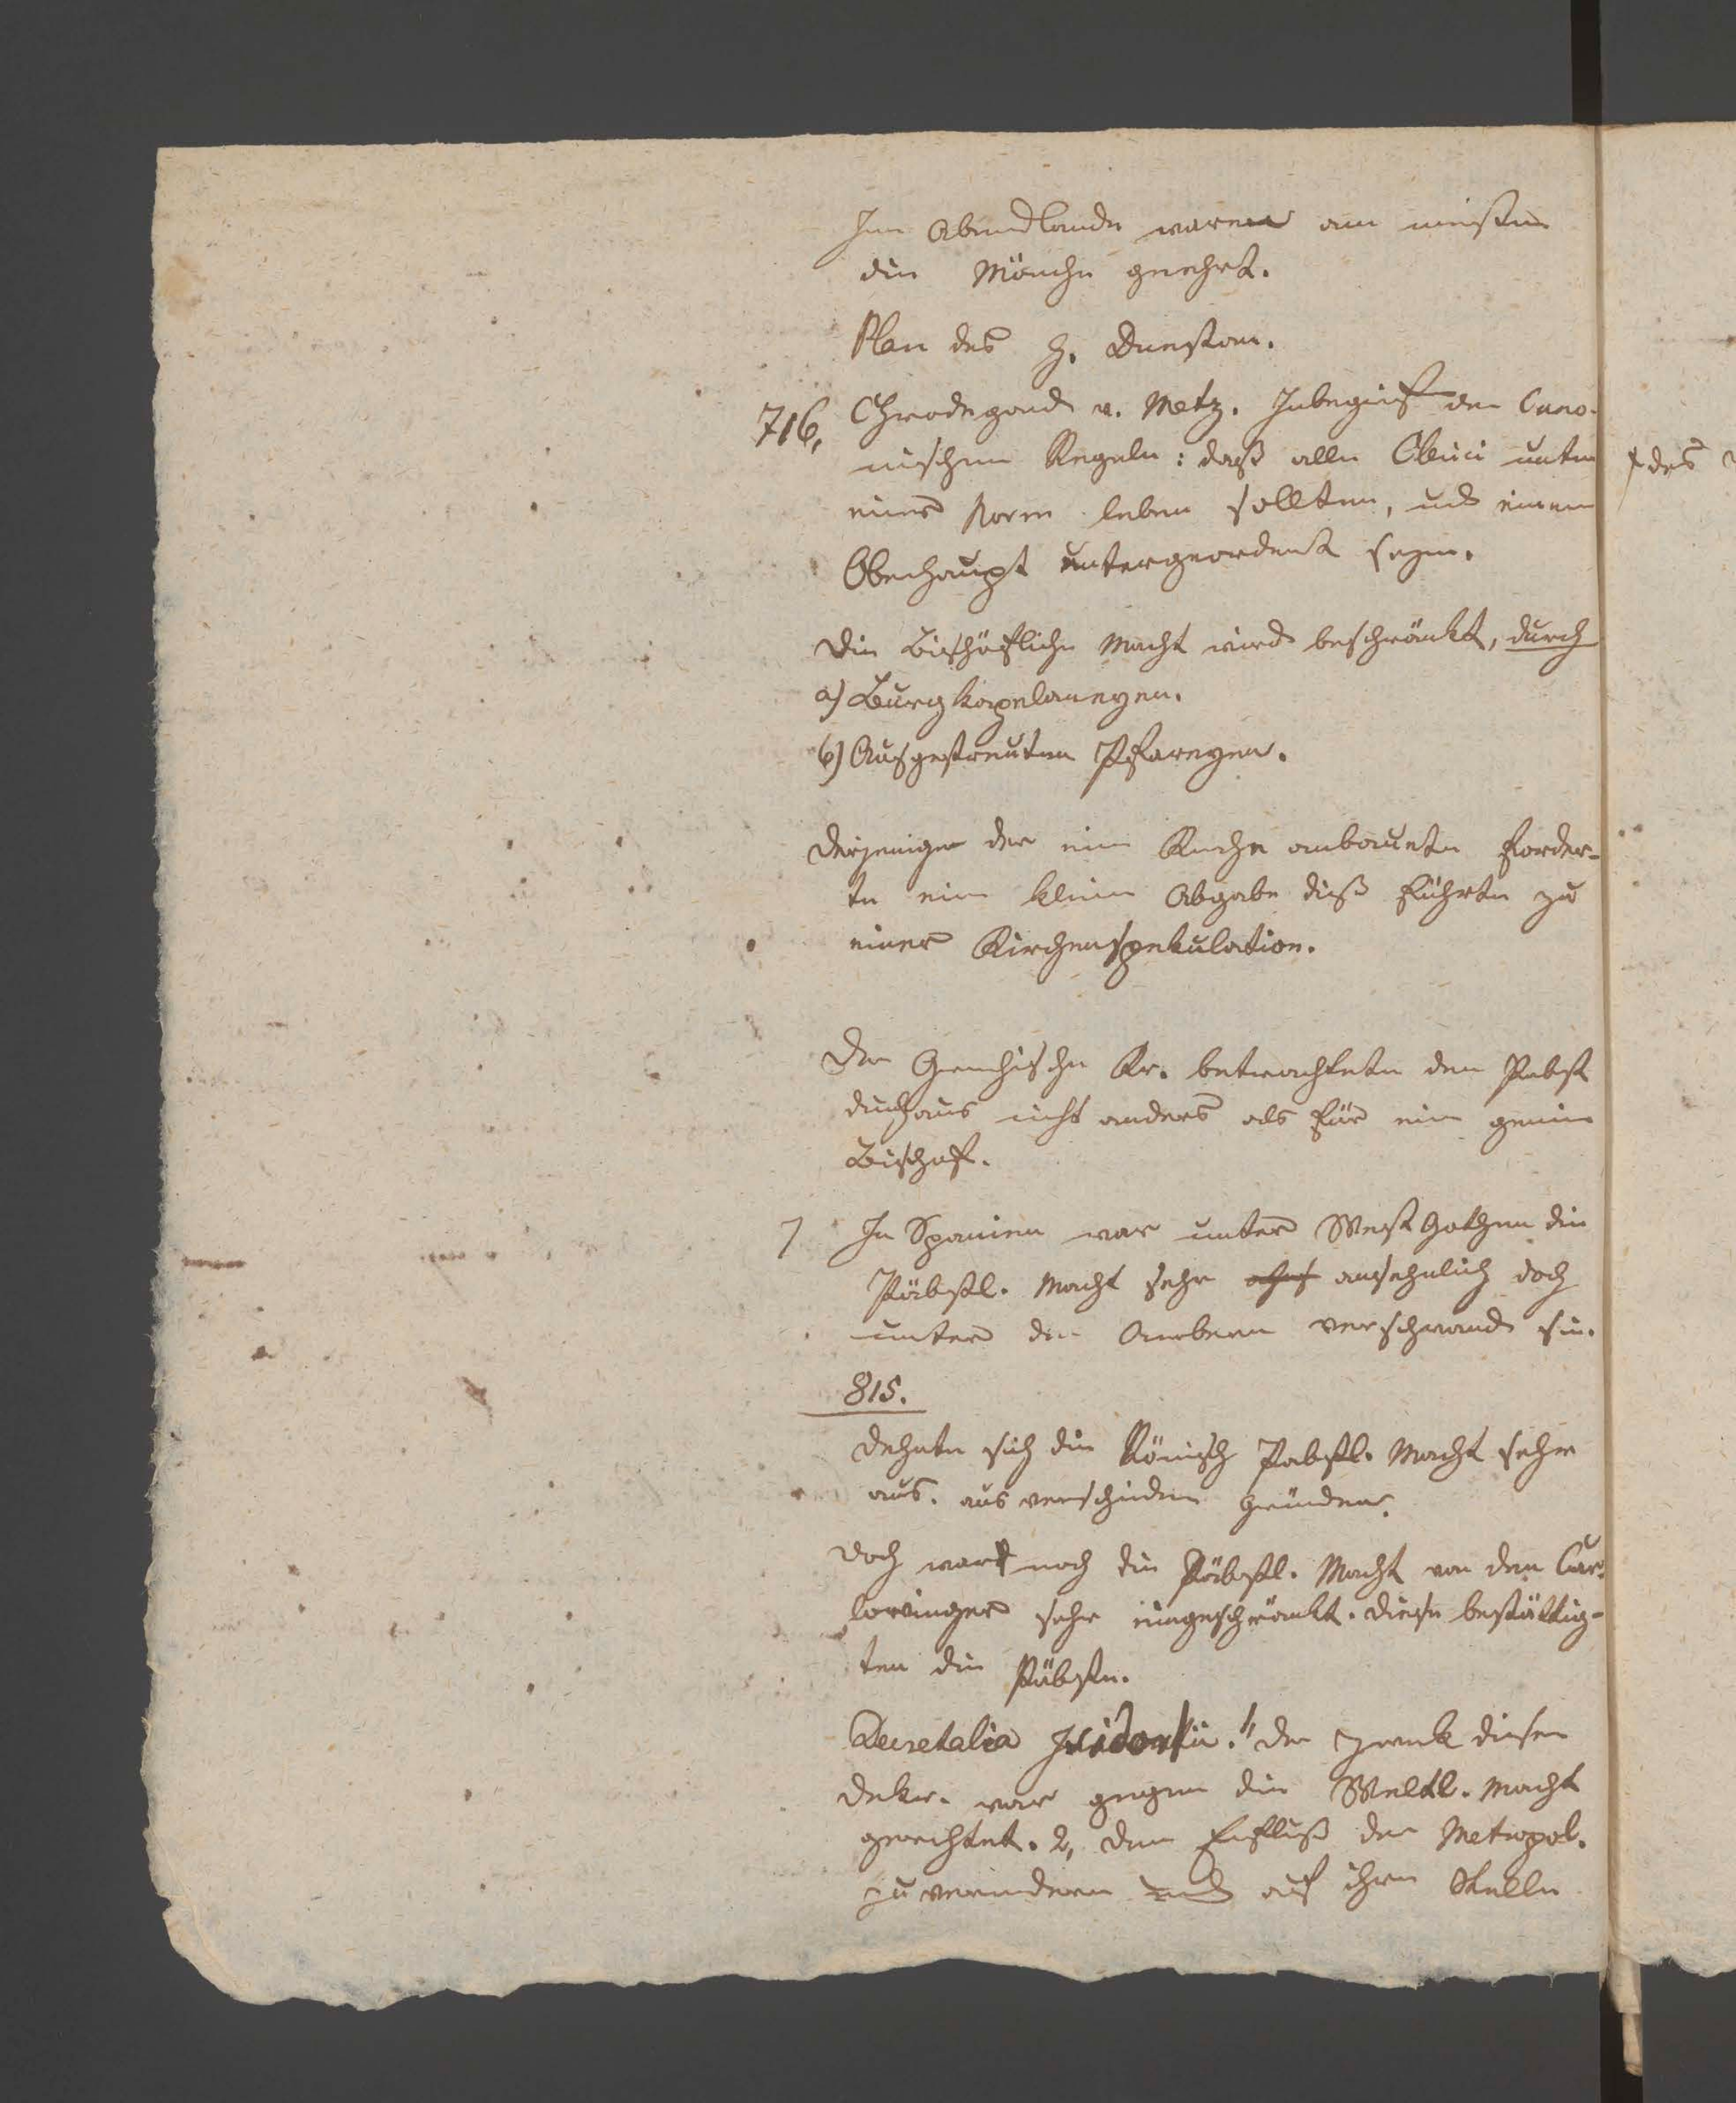 Im Abendlande waren am meisten
die Mönche geehrt.
Plan des H. Dunstan.
716, Chrodegand v. Metz. Inbegrif der Cano-
nischen Regeln: daß alle Clerici unter
einer Norm leben sollten, und einem
Oberhaupt untergeordent seyen.
Die Bischöfliche Macht wird beschränkt, durch
a) Burgkapelaneyen.
b) Ausgestreuten Pfareyen.
Derjenige der eine Kirche anbauete forder-
te eine kleine Abgabe dieß führte zu
einer Kirchenspekulation.
Der Griechische Kr. betrachtete den Pabst
durchaus nicht anders als für ein gemein
Bischof.
7 In Spanien war unter West Gothen die
Päbstl. Macht sehr ansehnlich doch
unter den Arabern verschwand sie.
815.
Dehnte sich die Römisch Pabstl. Macht sehr
aus. aus verschieden gründen.
Doch ward noch die Päbstl. Macht von den Car-
lovinger sehr eingeschränkt. Diese bestättig-
ten die Päbste.
Decretalia Isidorii. 1, der Zweck diser
Dekr. war gegen die Weltl. Macht
gerichtet. 2, den Einfluß der Metropol.
zu verindern und auf ihre Stelle
des